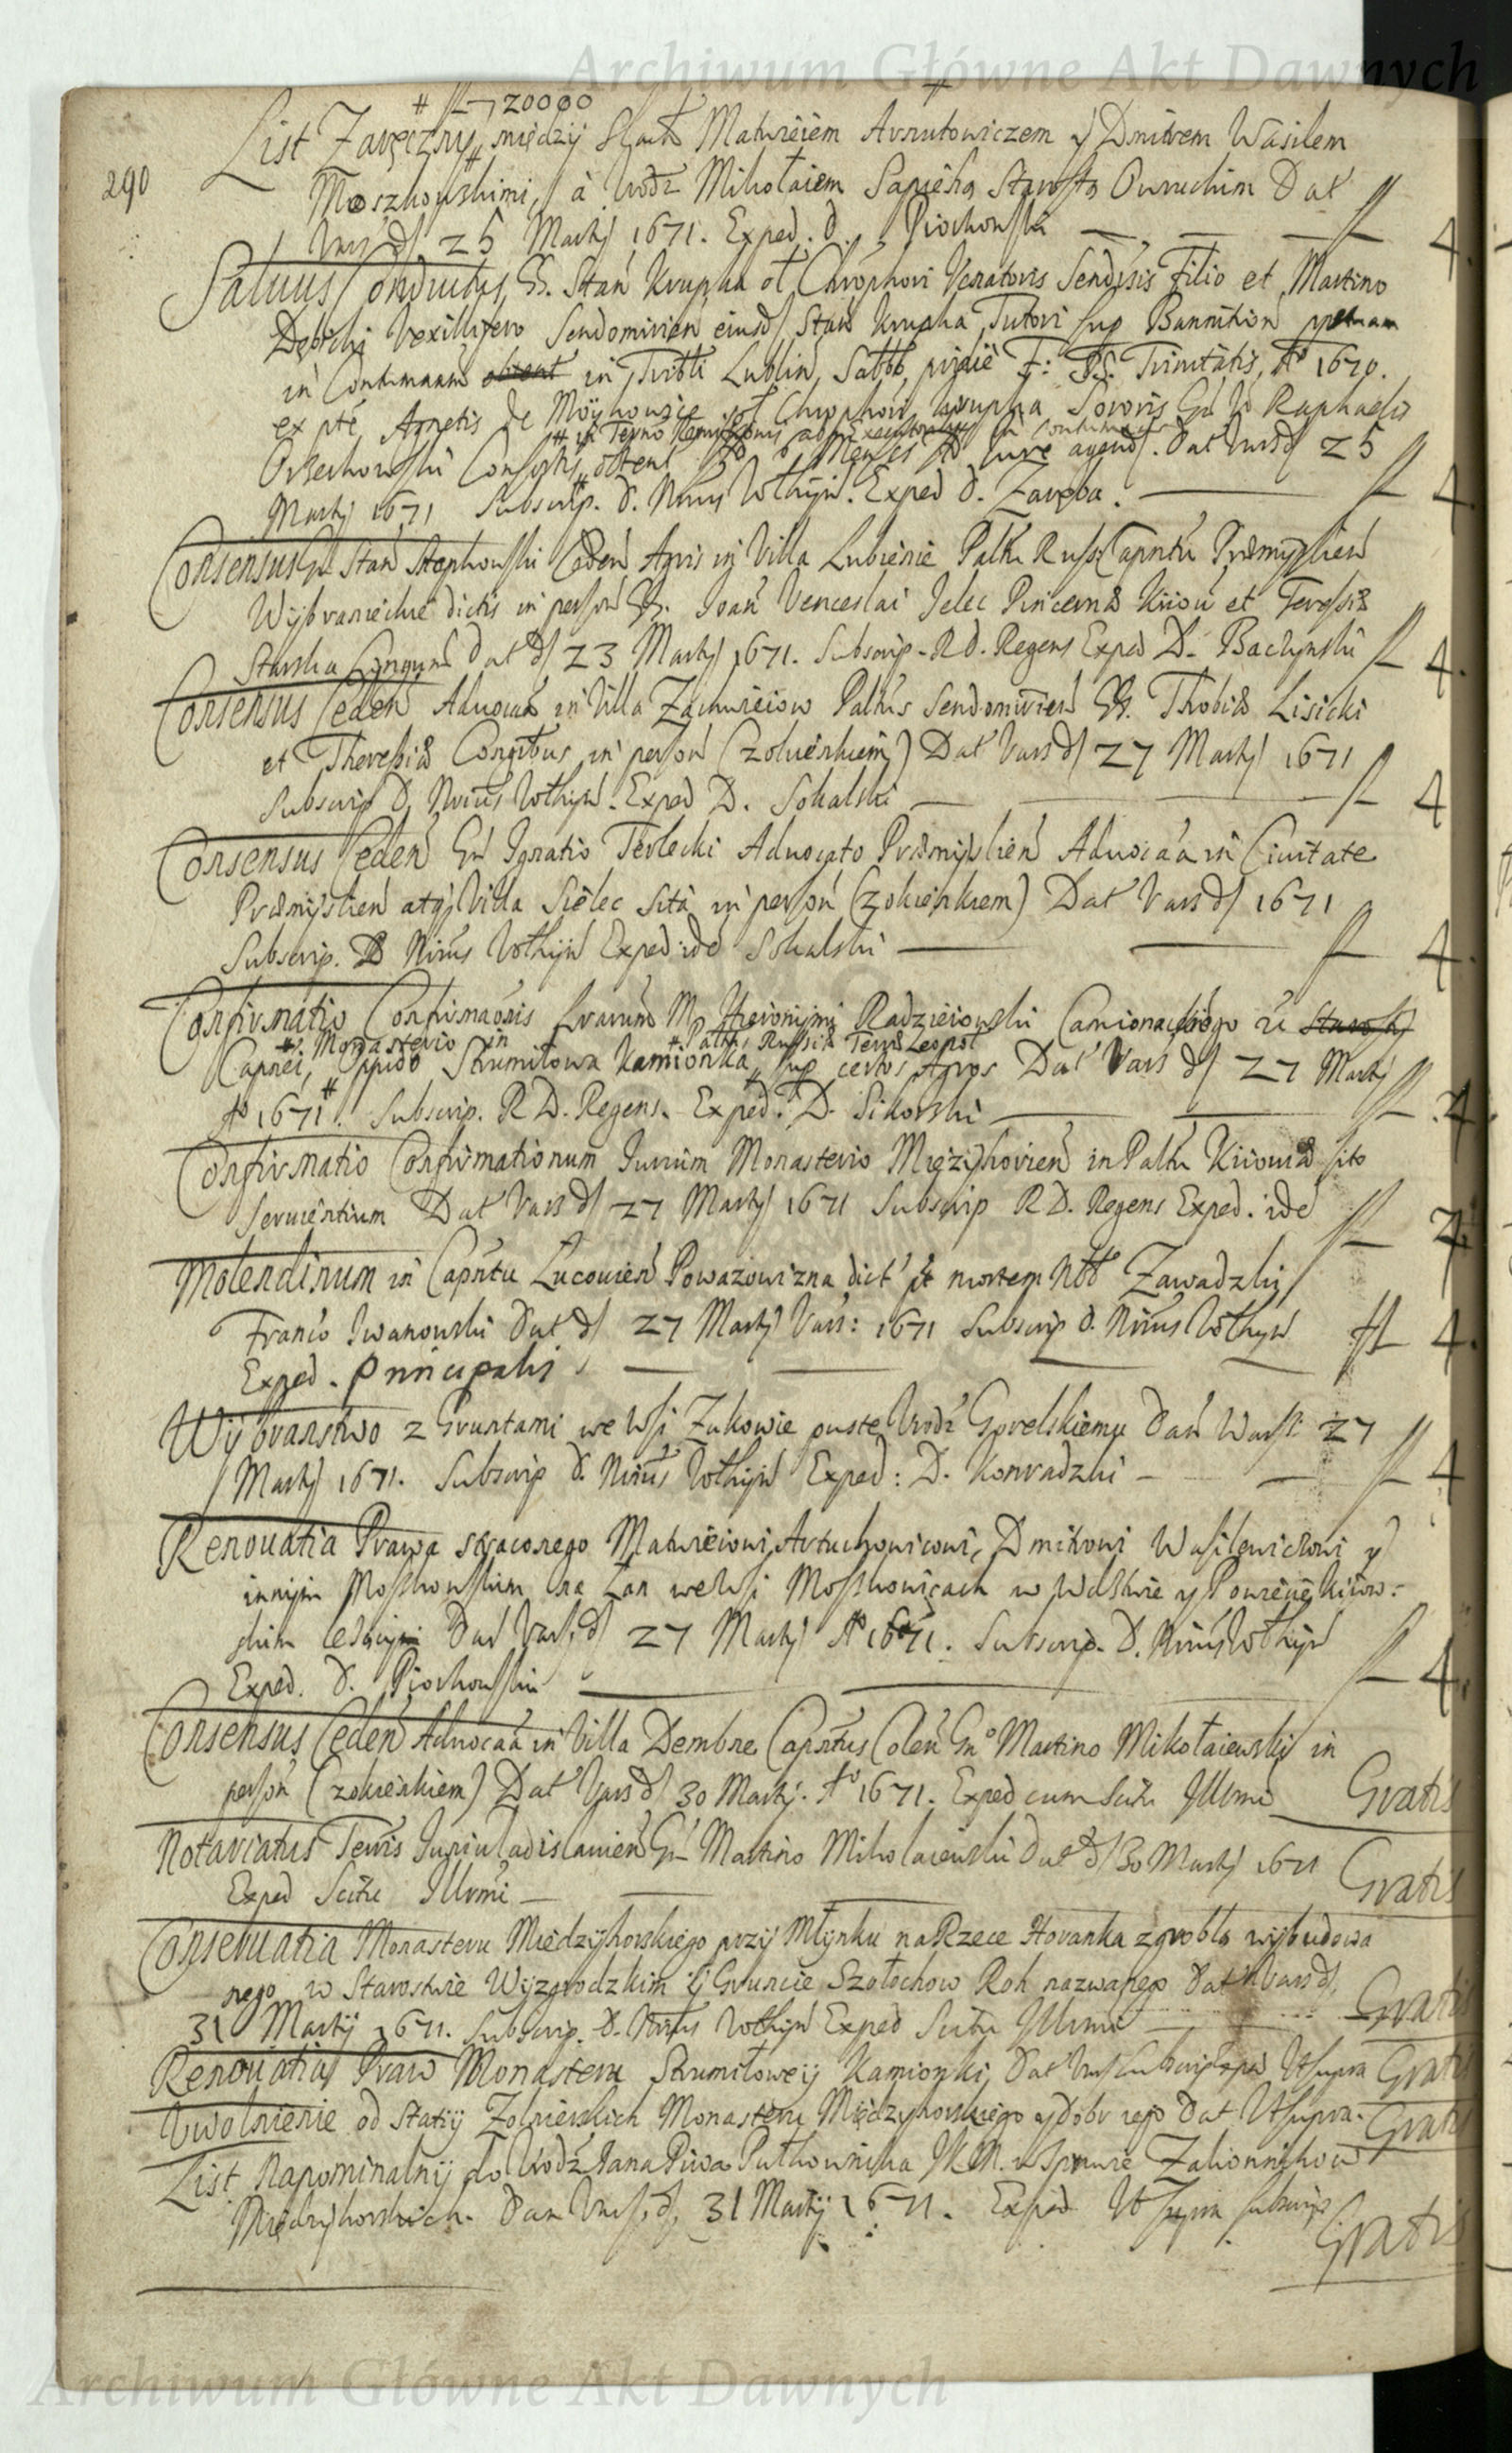 Archiwum Główne Akt Dawnych
# fl 20000
List Zaręczny między Slach Matwieiem Avrutowiczem y Dmitrem Wasilem
290
Moszkowskimi, à Urodz Mikołaiem Sapiehą Starostą Owruckim Dat
Vars d 25 Martij 1671. Exped. d. Piochowski — — — fl 4
Saluus Conductus, GG. Stan Krupka ol Chrophori Venatoris Sendisis Filio et Martino
Dębicki Vexillifero Sendomirien eiusd Stan Krupka Tutori sup Bannition
in Contumaam in Tribli Lublin, Sabbo pridie F: SS. Trinitatis, Ao 1670.
ex pte Agnetis de Moykowice ol Chrophori Krupka Sororis Gn V Raphaelis
# in Termo
Orzechowski Consortis # obtent 6 Menses iure agend. Dat Varsd 25
Martij 1671 Subscrip. d. Nrius Wolhijn. Exped d. Zaręba. — fl 4
Consensus Gn Stan Stephowski Ceden Agris in Villa Lubienie Palti Russ Capnéu Præmyslien
Wybranieckie dictis in person GG. Joan Venceslai Jelec Pincernæ Kiiou et Teresiæ
Starska Coniugum Dat d 23 Martij 1671. Subscrip. R d. Regens Exped D. Baczynski fl 4.
Consensus Ceden Aduocaa in Villa Zachwieiow Paltus Sendomirien GG. Thobiæ Lisicki
et Theresiæ Congibus in person (z okienkiem) Dat Vars d 27 Martij 1671
Subscrip D. Nrius Wolhijn. Exped D. Sokalski — — fl 4
Consensus Ceden Gn Ignatio Terlecki Aduocato Præmijslien Aduocaa in Ciuitate
Præmijslien atq Villa Sielec sita in person (z okienkiem) Dat Vars d 1671
Subscrip. D Nrius Wolhijn Exped ide Sokalski — — fl 4
Confirmatio Confirmaonis Lrarum M. Hieronijmi Radzieiowski Camionackiego ir Starosty
# Monasterio in # Paltu Russiæ Terræ Leopol
Capnei, Oppido Strumiłowa Kamionka, sup certos Agros Dat Vars d 27 Martij
Ao 1671. Subscrip. R D. Regens. Exped. D. Sikorski — — fl 4.
Confirmatio Confirmationum Iurium Monasterio Międzyhorien in Paltu Kiiouiæ sito
Seruientium Dat Vars d 27 Martij 1671 Subscrip R D. Regens Exped. ide fl 4.
Molendinum in Capnéu Lucouien Powazowizna dict pt mortem Nbb Zawadzki
Franco Iwanowski Dat d 27 Martij Vars: 1671 Subscrip d. Nrius Wolhyn fl 4.
Exped. Principalis — —
Wijbranstwo z Gruntami we Wsi Zukowie puste Urodz Gorelskiemu Dan Wars 27
Martij 1671. Subscrip d. Nrius Wolhijn Exped: D. Konradzki — — fl 4
Renouatia Prawa straconego Matwieiowi, Artuchowicowi, Dmitrowi Wasilewiczowi y
innijm Moszkowskim na Łan we Wsi Moszkowicach w Wdztwie y Powiecie Kiiow-
skim lezącym Dan Vars. d 27 Martij Ao 1671. Subscrip. D. Nrius Wolhijn
Exped. d. Piochowski — — fl 4.
Consensus Ceden Aduocaa in Villa Dembne Capnéus Colen Gno Martino Mikołaiewski in
person (z okienkiem) Dat Vars d 30 Martij. Ao 1671. Exped cum scitu Illrmi Gratis
Notariatus Terris Iuniuladislauien Gn Martino Mikołaiewski Dat d 30 Martij 1671
Exped Scitu Illrmi — — Gratis
Conseruatia Monasteru Miedzijhorskiego przij Młijnku na Rzece Horanka z groblą wijbudowa
nego w Starostwie Wijzgrodzkim y Gruncie Szołochow Roh nazwanego Dat Vars d,
31 Martij 1671. Subscrip. d. Nrius Wolhijn Exped Scitu Illrmi — Gratis
Renouatia Praw Monasteru Strumiłoweij Kamionki, Dat Vars Subscrip Exped Ut supra Gratis
Uwolnienie od Statij Zołnierskich Monasteru Międzyhorskiego y dobr iego Dat Ut supra. Gratis
List Napominalnij do Urodz Jana Piwa Pułkownika JKM. w sprawie Zakonnikow
Międzyhorskich. Dan Vars. d, 31 Martij 1671. Exped Ut supra subscrip Gratis
Archiwum Główne Akt Dawnych